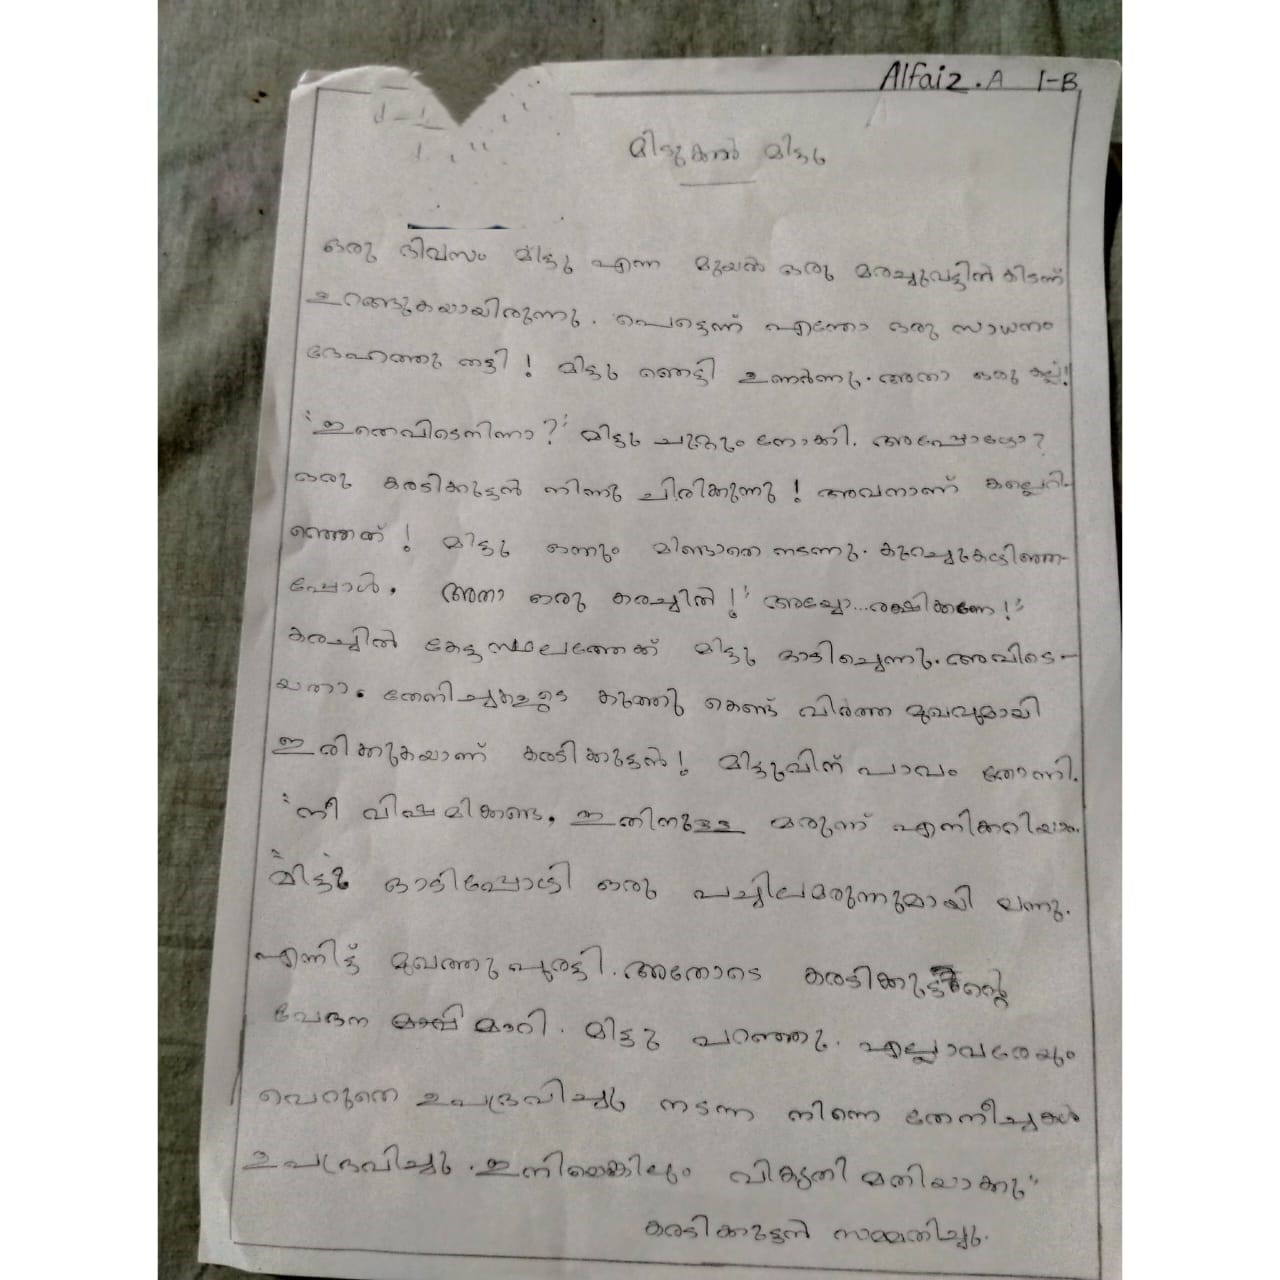 Alfaiz.A 1-B
മിടുക്കൻ മിട്ടു
ഒരു ദിവസം മിട്ടു എന്ന മുയൽ ഒരു മരച്ചുവട്ടിൽ കിടന്ന്
ഉറങ്ങുകയായിരുന്നു. പെട്ടെന്ന് എന്തോ ഒരു സാധനം
ദേഹത്തു തട്ടി! മിട്ടു ഞെട്ടി ഉണർന്നു. അതാ ഒരു കല്ല്!
'ഇതെവിടെനിന്നാ?' മിട്ടു ചുറ്റും നോക്കി. അപ്പോഴോ?
ഒരു കരടിക്കുട്ടൻ നിന്നു ചിരിക്കുന്നു! അവനാണ് കല്ലെറി-
ഞ്ഞത്! മിട്ടു ഒന്നും മിണ്ടാതെ നടന്നു. കുറച്ചുകഴിഞ്ഞ-
പ്പോൾ. അതാ ഒരു കരച്ചിൽ! 'അയ്യോ...രക്ഷിക്കണേ!'
കരച്ചിൽ കേട്ട സ്ഥലത്തേക്ക് മിട്ടു ഓടിച്ചെന്നു. അവിടെ-
യതാ. തേനീച്ചകളുടെ കുത്തു കൊണ്ട് വീർത്ത മുഖവുമായി
ഇരിക്കുകയാണ് കരടിക്കുട്ടൻ! മിട്ടുവിന് പാവം തോന്നി.
"നീ വിഷമിക്കണ്ട, ഇതിനുള്ള മരുന്ന് എനിക്കറിയാം.
"മിട്ടു ഓടിപ്പോയി ഒരു പച്ചിലമരുന്നുമായി വന്നു.
എന്നിട്ട് മുഖത്തു പുരട്ടി. അതോടെ കരടിക്കുട്ടന്റെ
വേദന മാറി. മിട്ടു പറഞ്ഞു. എല്ലാവരേയും
വെറുതെ ഉപദ്രവിച്ചു നടന്ന നിന്നെ തേനീച്ചകൾ
ഉപദ്രവിച്ചു. ഇനിയെങ്കിലും വികൃതി മതിയാക്കു"
കരടിക്കുട്ടൻ സമ്മതിച്ചു.